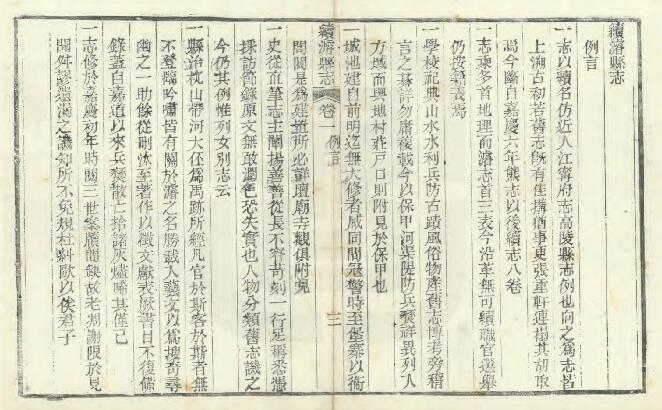 續濬縣志
例言
一志以續名仿近人江寧府志高陵縣志例也向之為志皆
上溯古初若舊志旣有佳搆猶事更張重軒連搨其胡取
焉今斷自嘉慶六年熊志以後續志八卷
一志乘多首地理而濬志首三表今沿革無可續職官選舉
仍按續表焉
一學校祀典山水水利兵防古蹟風俗物產舊志博考旁稽
言之綦詳勿庸複載今以保甲河渠隄防兵燹祥異列入
方域而輿地村莊戶口則附見於保甲也
一城池建自前明迄無大修者咸同間寇警時至堡寨以衞
續濬縣志
卷一 例言
三
閭閻是為建置所必詳壇廟寺觀俱附見
一史從直筆志主闡揚善善從長不齊苛刻一行足稱悉憑
採訪節錄原文無敢潤色恐失實也人物分類舊志譏之
今仍其例惟列女別志云
一縣治枕山帶河大伾為禹跡所經凡官於斯客於斯者無
不登臨吟嘯皆有關於濬之名勝載入藝文以為搜奇尋
幽之一助餘從刪汰至著作以徵文獻表厥書目不復備
錄蓋自嘉道以來兵燹散亡拾諸灰燼唏其僅已
一志修於嘉慶初年時閱三世案牘間缺故老凋謝限於見
聞舛謬遺漏之譏知所不免規杜糾歐以俟君子